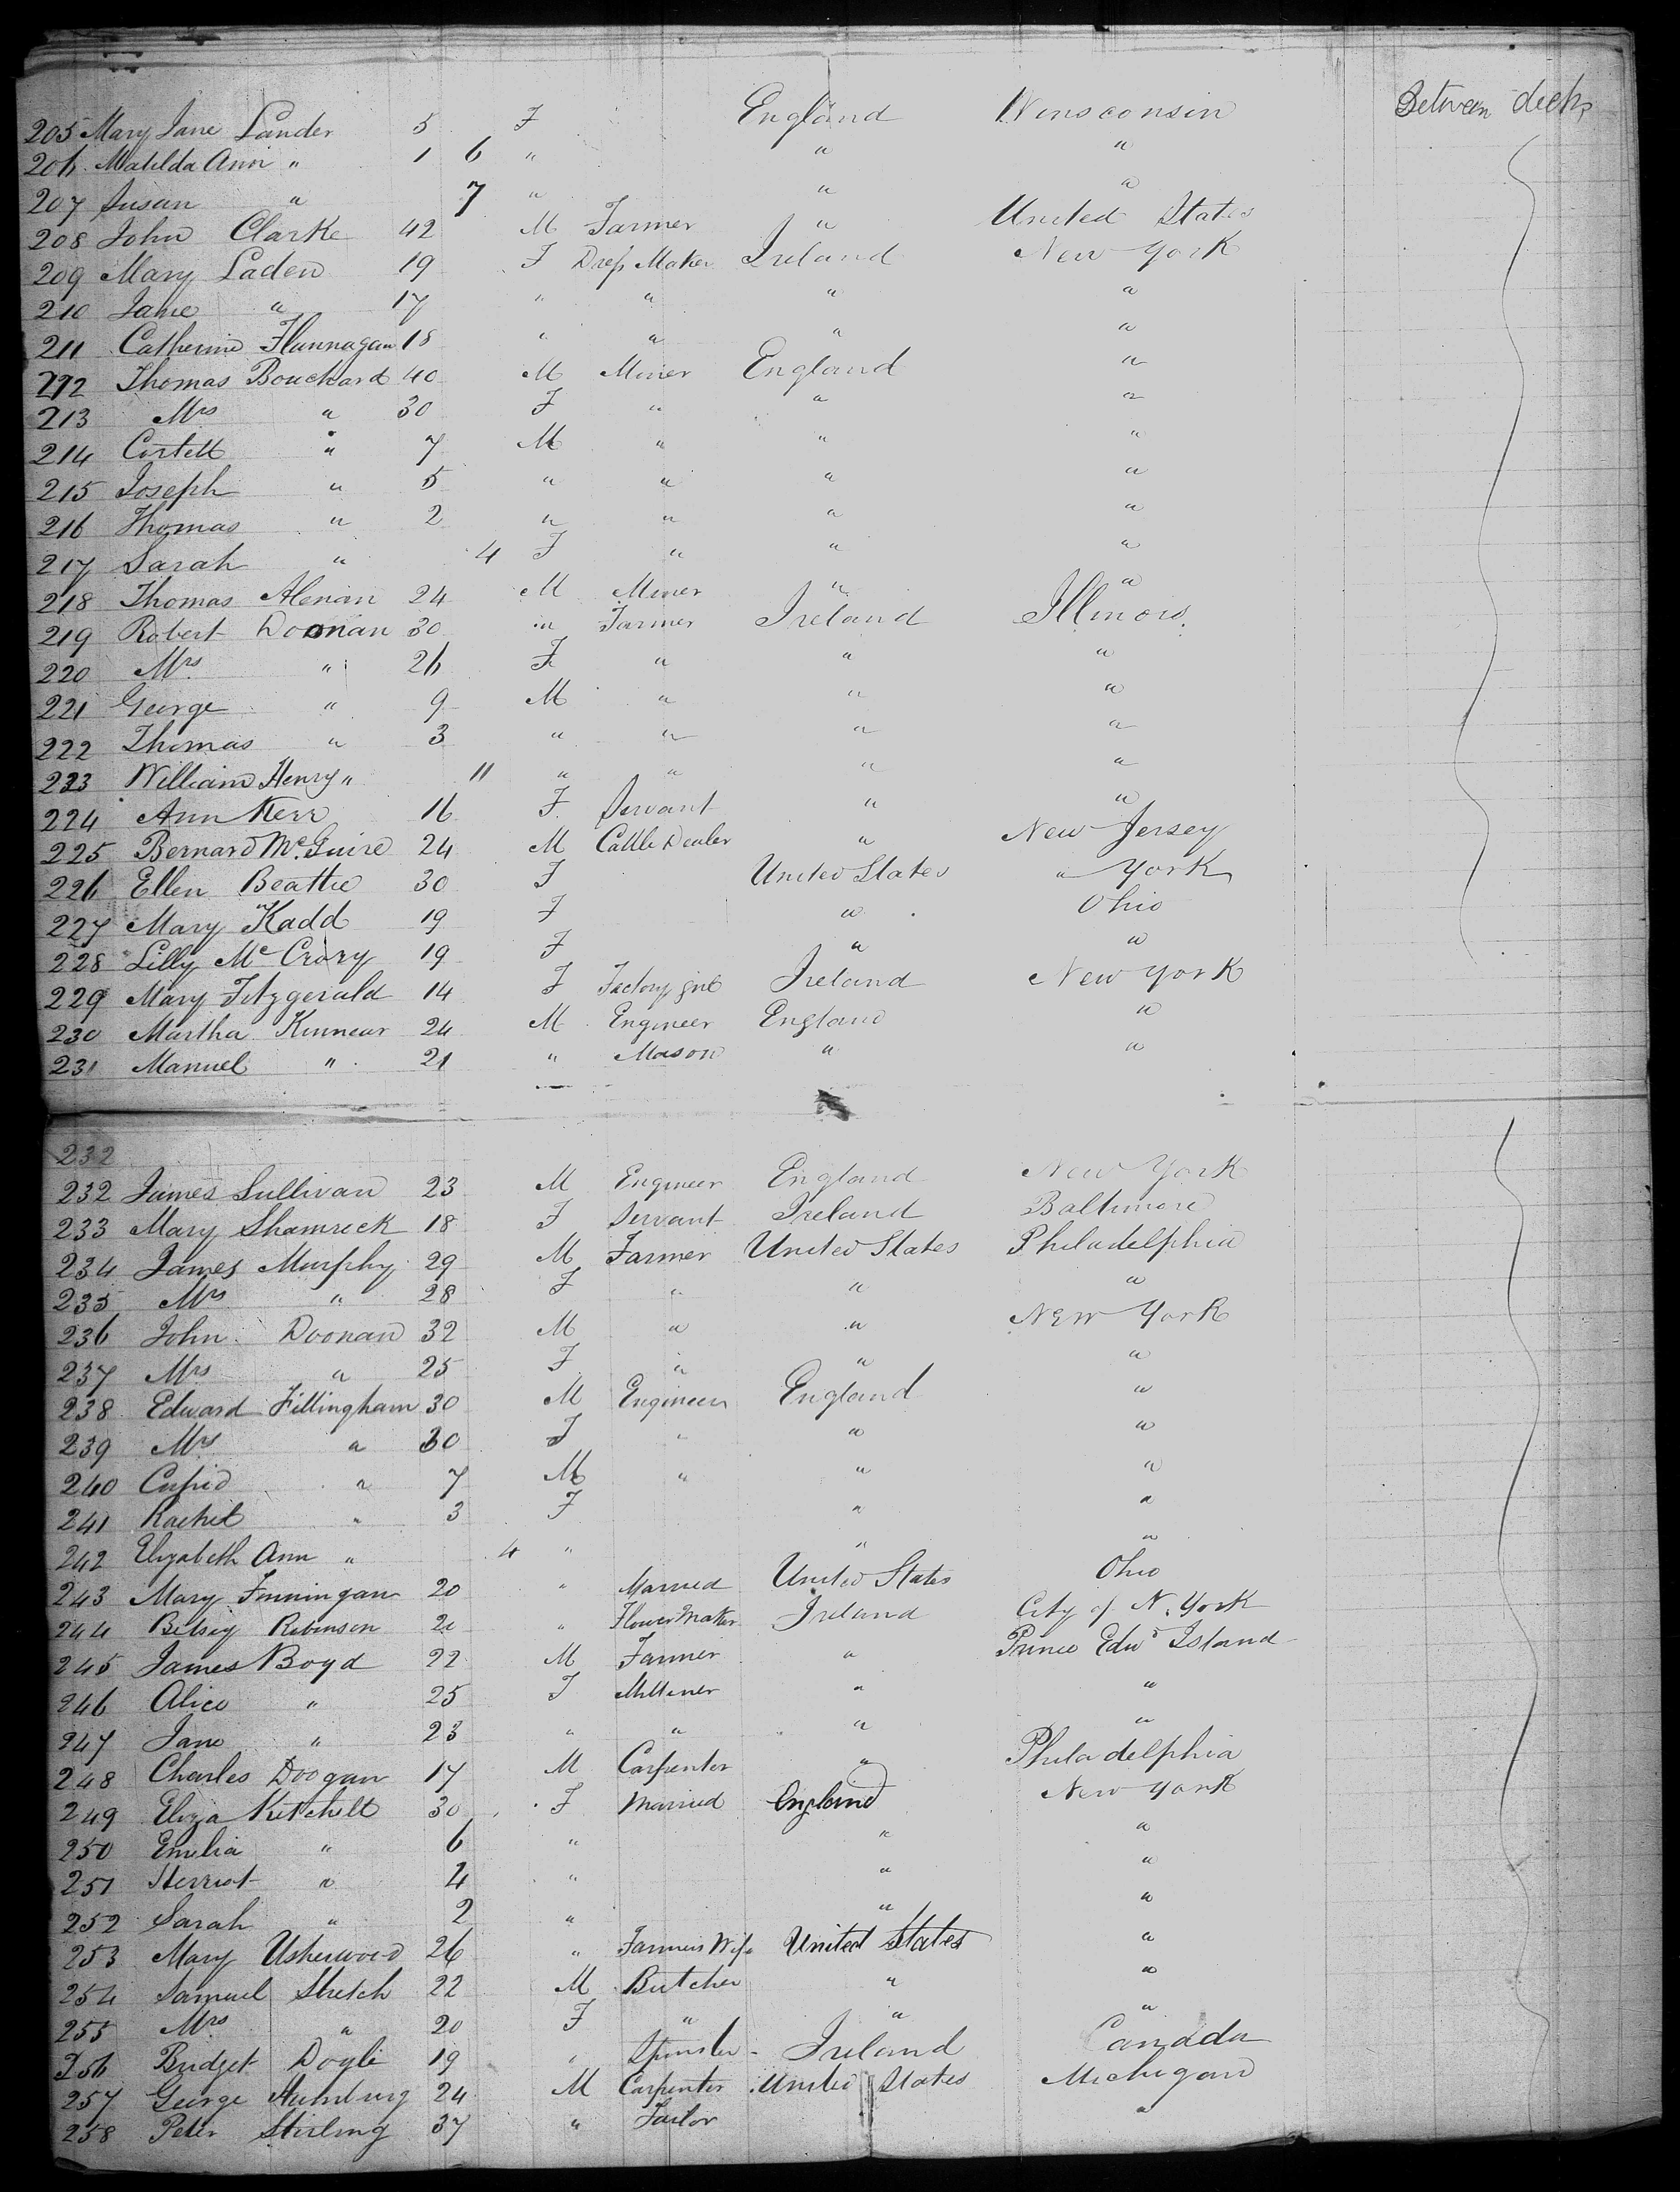 205 Mary Jane Lander 5 F England Winsconsin Between decks
206 Matilda Ann " 1 6 " " "
207 Susan " 7 " " "
208 John Clarke 42 M Farmer " United States
209 Mary Laden 19 F Dress Maker Ireland New York
210 Jane " 17 " " " "
211 Catherine Flannagan 18 " " " "
212 Thomas Bouchard 40 M Miner England "
213 Mrs " 30 F " " "
214 " 7 M " " "
215 Joseph " 5 " " " "
216 Thomas " 2 " " " "
217 Sarah " 4 F " " "
218 Thomas 24 M Miner " "
219 Robert Doonan 30 " Farmer Ireland Illinois.
220 Mrs " 26 F " " "
221 George " 9 M " " "
222 Thomas " 3 " " " "
223 William Henry " 11 " " " "
224 Ann Kerr 16 F. Servant " "
225 Bernard McGuire 24 M Cattle Dealer " New Jersey
226 Ellen Beattie 30 F United States " York
227 Mary Kadd 19 F " Ohio
228 Lilly McCrory 19 F " "
229 Mary Fitzgerald 14 F Factory girl Ireland New York
230 Martha Kinnear 24 M Engineer England "
231 Manuel " 21 " Mason " "
232
232 James Sullivan 23 M Engineer England New York
233 Mary Shamrock 18 F Servant Ireland Baltimore
234 James Murphy 29 M Farmer United States Philadelphia
235 Mrs " 28 F " " "
236 John Doonan 32 M " " New York
237 Mrs " 25 F " " "
238 Edward Fillingham 30 M Engineer England "
239 Mrs " 30 F " " "
240 Cupid " 7 M " " "
241 Rachel " 3 F " "
242 Elizabeth Ann " 4 " " "
243 Mary Finningan 20 " Married United States Ohio
244 Betsey Robinson " Flower Maker Ireland City of N. York
245 James Boyd 22 M Farmer " Prince Edwd Island
246 Alice " 25 F Milliner " "
247 Jane " 23 " " " "
248 Charles Doogan 17 M Carpenter " Philadelphia
249 Eliza Kitchilt 30 F Married England New York
250 Emilia " 6 " " "
251 Herriot " 4 " " "
252 Sarah " 2 " " "
253 Mary Usherwood 26 " Farmers Wife United States "
254 Samuel Stretch 22 M Butcher " "
255 Mrs " 20 F " " "
256 Bridget Doyle 19 " Spinster Ireland Canada
257 George Humburg 24 M Carpenter United States Michigan
258 Peter Stirling 37 " Tailor "